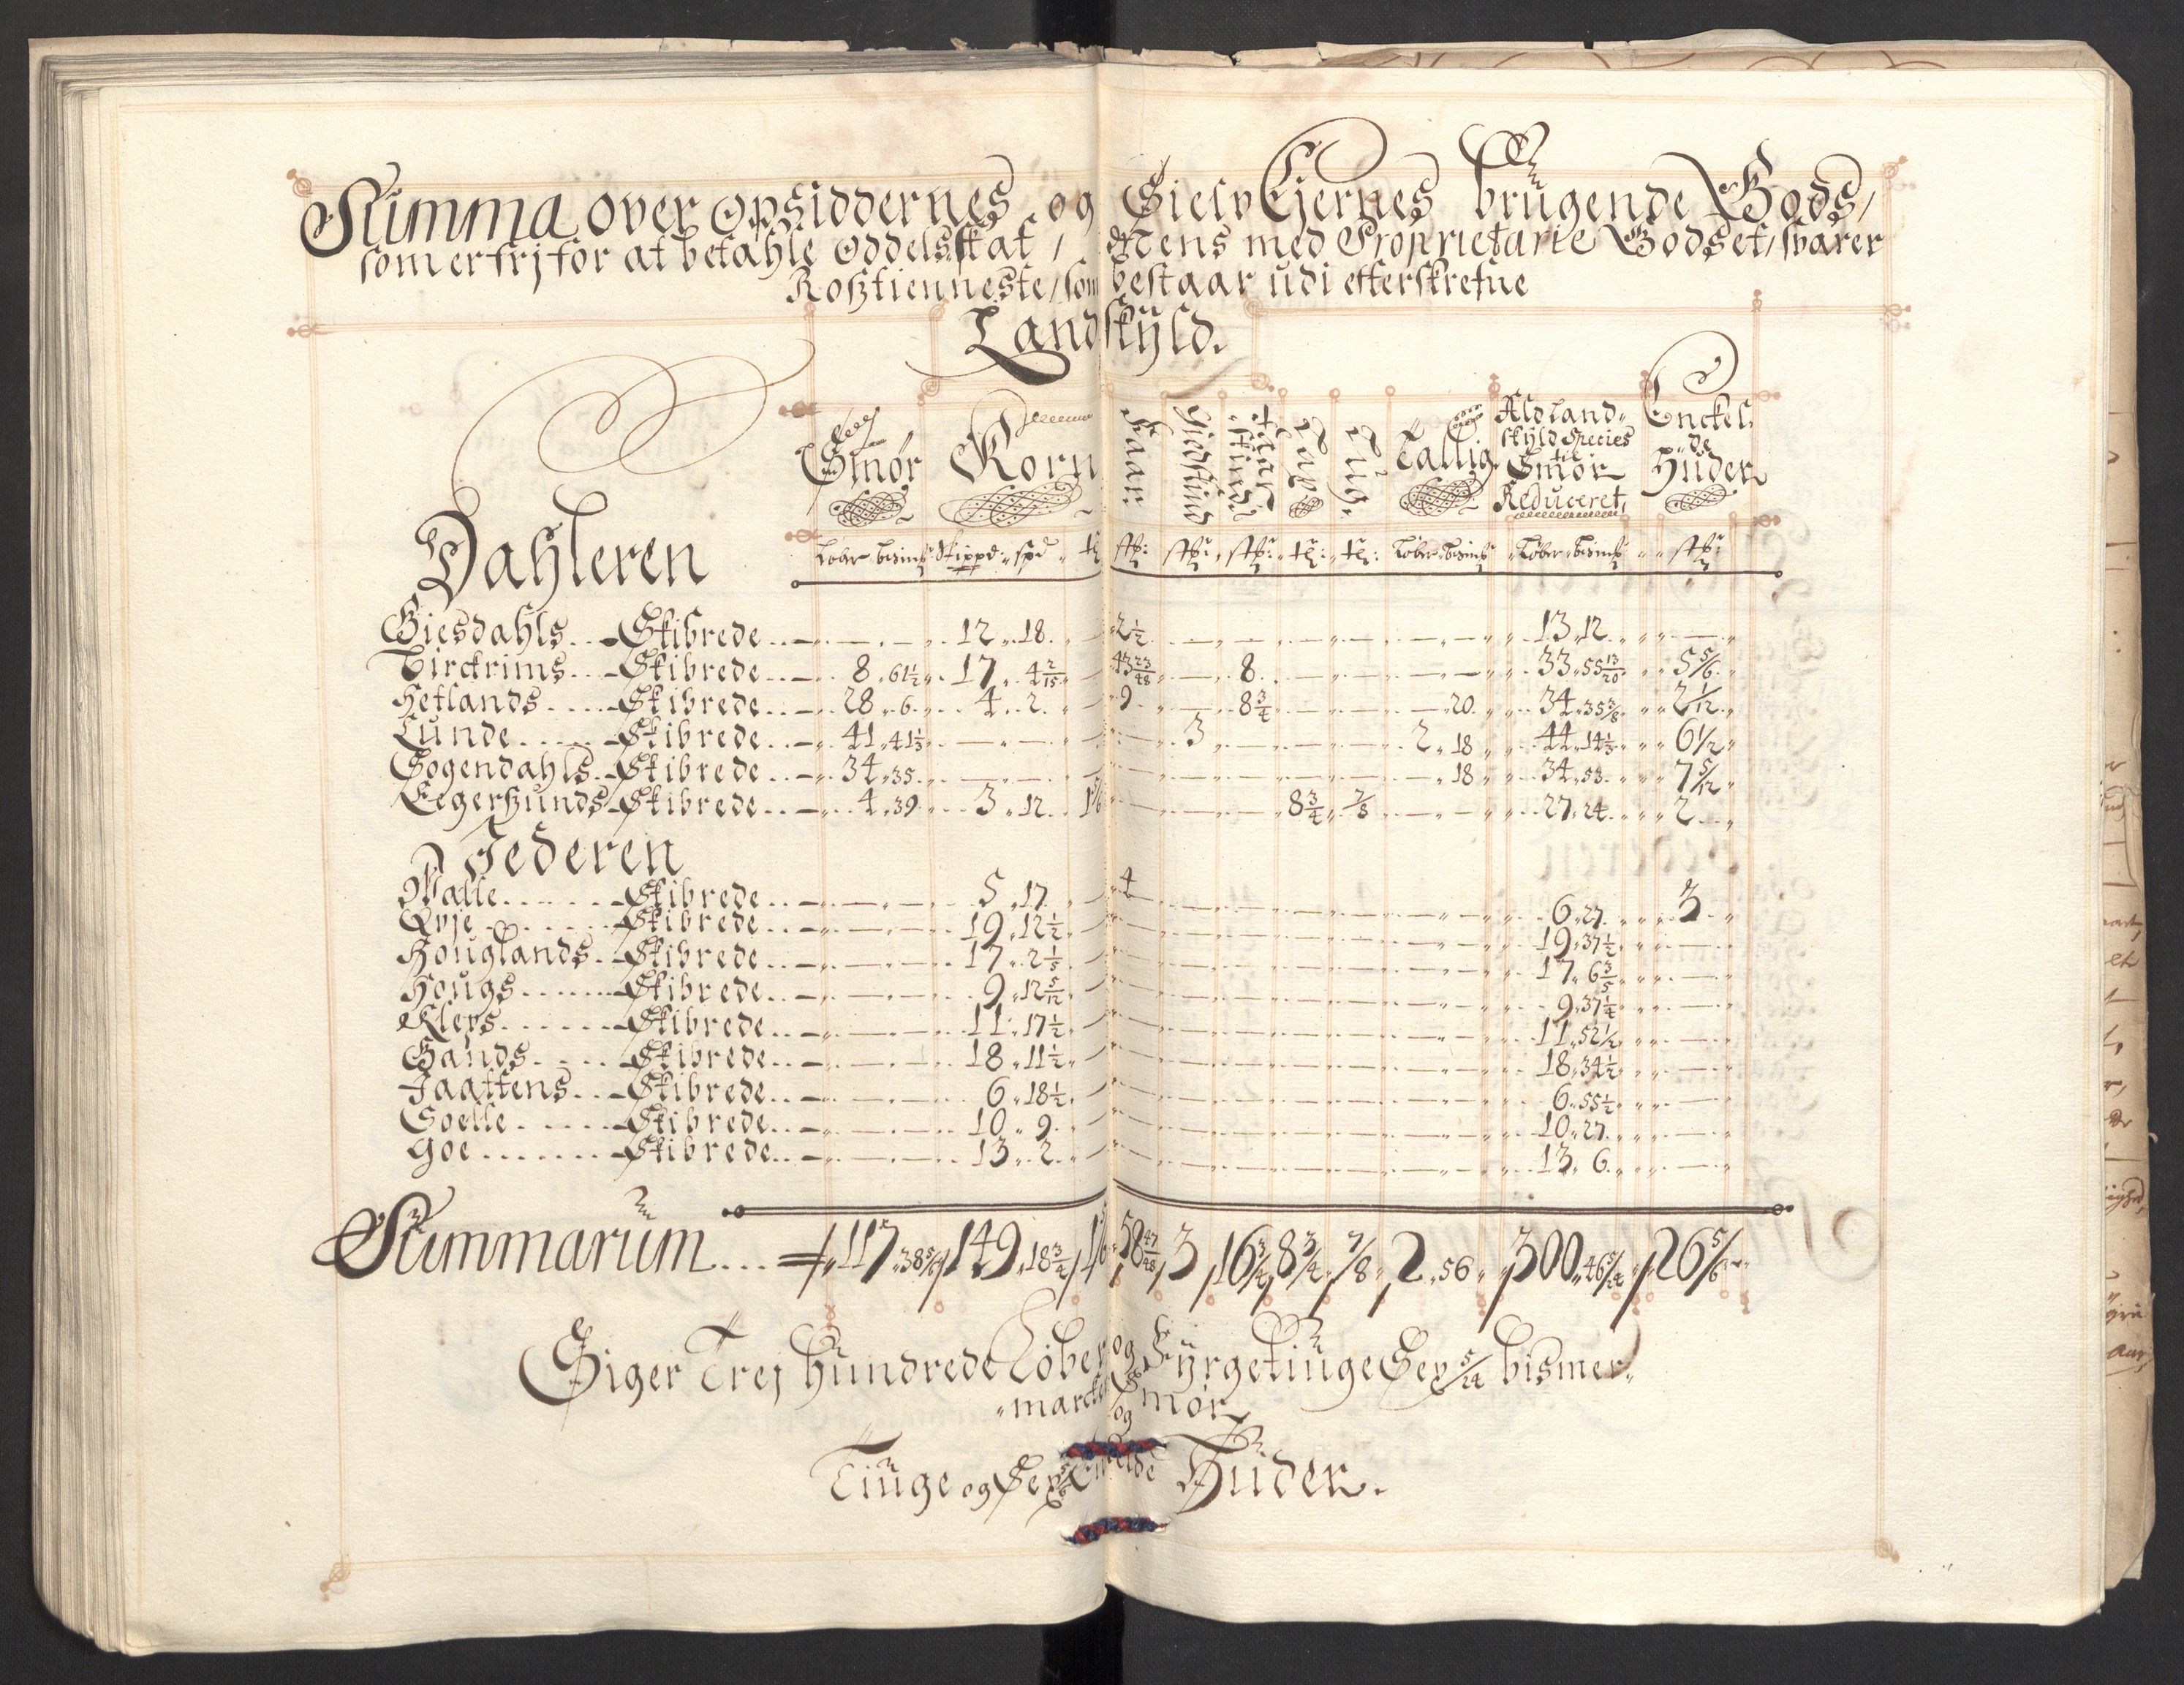 Summa over opsiddernes og SielvEjernes brugende Gods,
som er frj for at betahle Oddelsskat, Mens med Proprietarie Godset, svarer
Rosztienneste, som bestaar udi efterskrefne
Landskyld.
Smør Korn Faar Giedskind Kalfskind Salt Tallig Aldland- skyld Species til Smør Reduceret, Enckel- de Hüder
Dahleren
Løber bismkr Skippd: spd tr stk: stkr: stkr: tr: tr: Løber bismkr Løber bismkr stkr:
Giesdahls Skibrede 12 18 2½ 13 12
Birckrims Skibrede 8 61½ 17 4 2/15 43 23/48 8 33 55 13/20 5 5/6
Hetlands Skibrede 28 6 4 2 9 8¾ 20 34 35 3/8 2 1/12
Lunde Skibrede 41 41⅓ 3 2 18 44 14⅓ 6½
Sogendahls Skibrede 34 35 18 34 53 7 5/12
Eegerszunds Skibrede 4 39 3 12 1 5/6 8¾ 7/8 27 24 2
Jederen
Nalle Skibrede 5 17 4 6 27 3
Qvje Skibrede 19 12½ 19 37½
Houglands Skibrede 17 2 1/5 17 6 3/5
Hougs Skibrede 9 12 5/12 9 37¼
Kleps Skibrede 11 17½ 11 52½
Gands Skibrede 18 11½ 18 34½
Jaattens Skibrede 6 18½ 6 55½
Soelle Skibrede 10 9 10 27
Goe Skibrede 13 2 13 6
Summarum 117 38 5/6 149 18¾ 1 5/6 58 47/48 3 16¾ 8¾ 7/8 2 56 300 46 5/24 26 5/6
Siger Trej hundrede Løber og Fyrgetiuge Sex 5/24 bismer
marcker Smør
og
Tiuge og Sex 5/6 Enckelde Hüder.